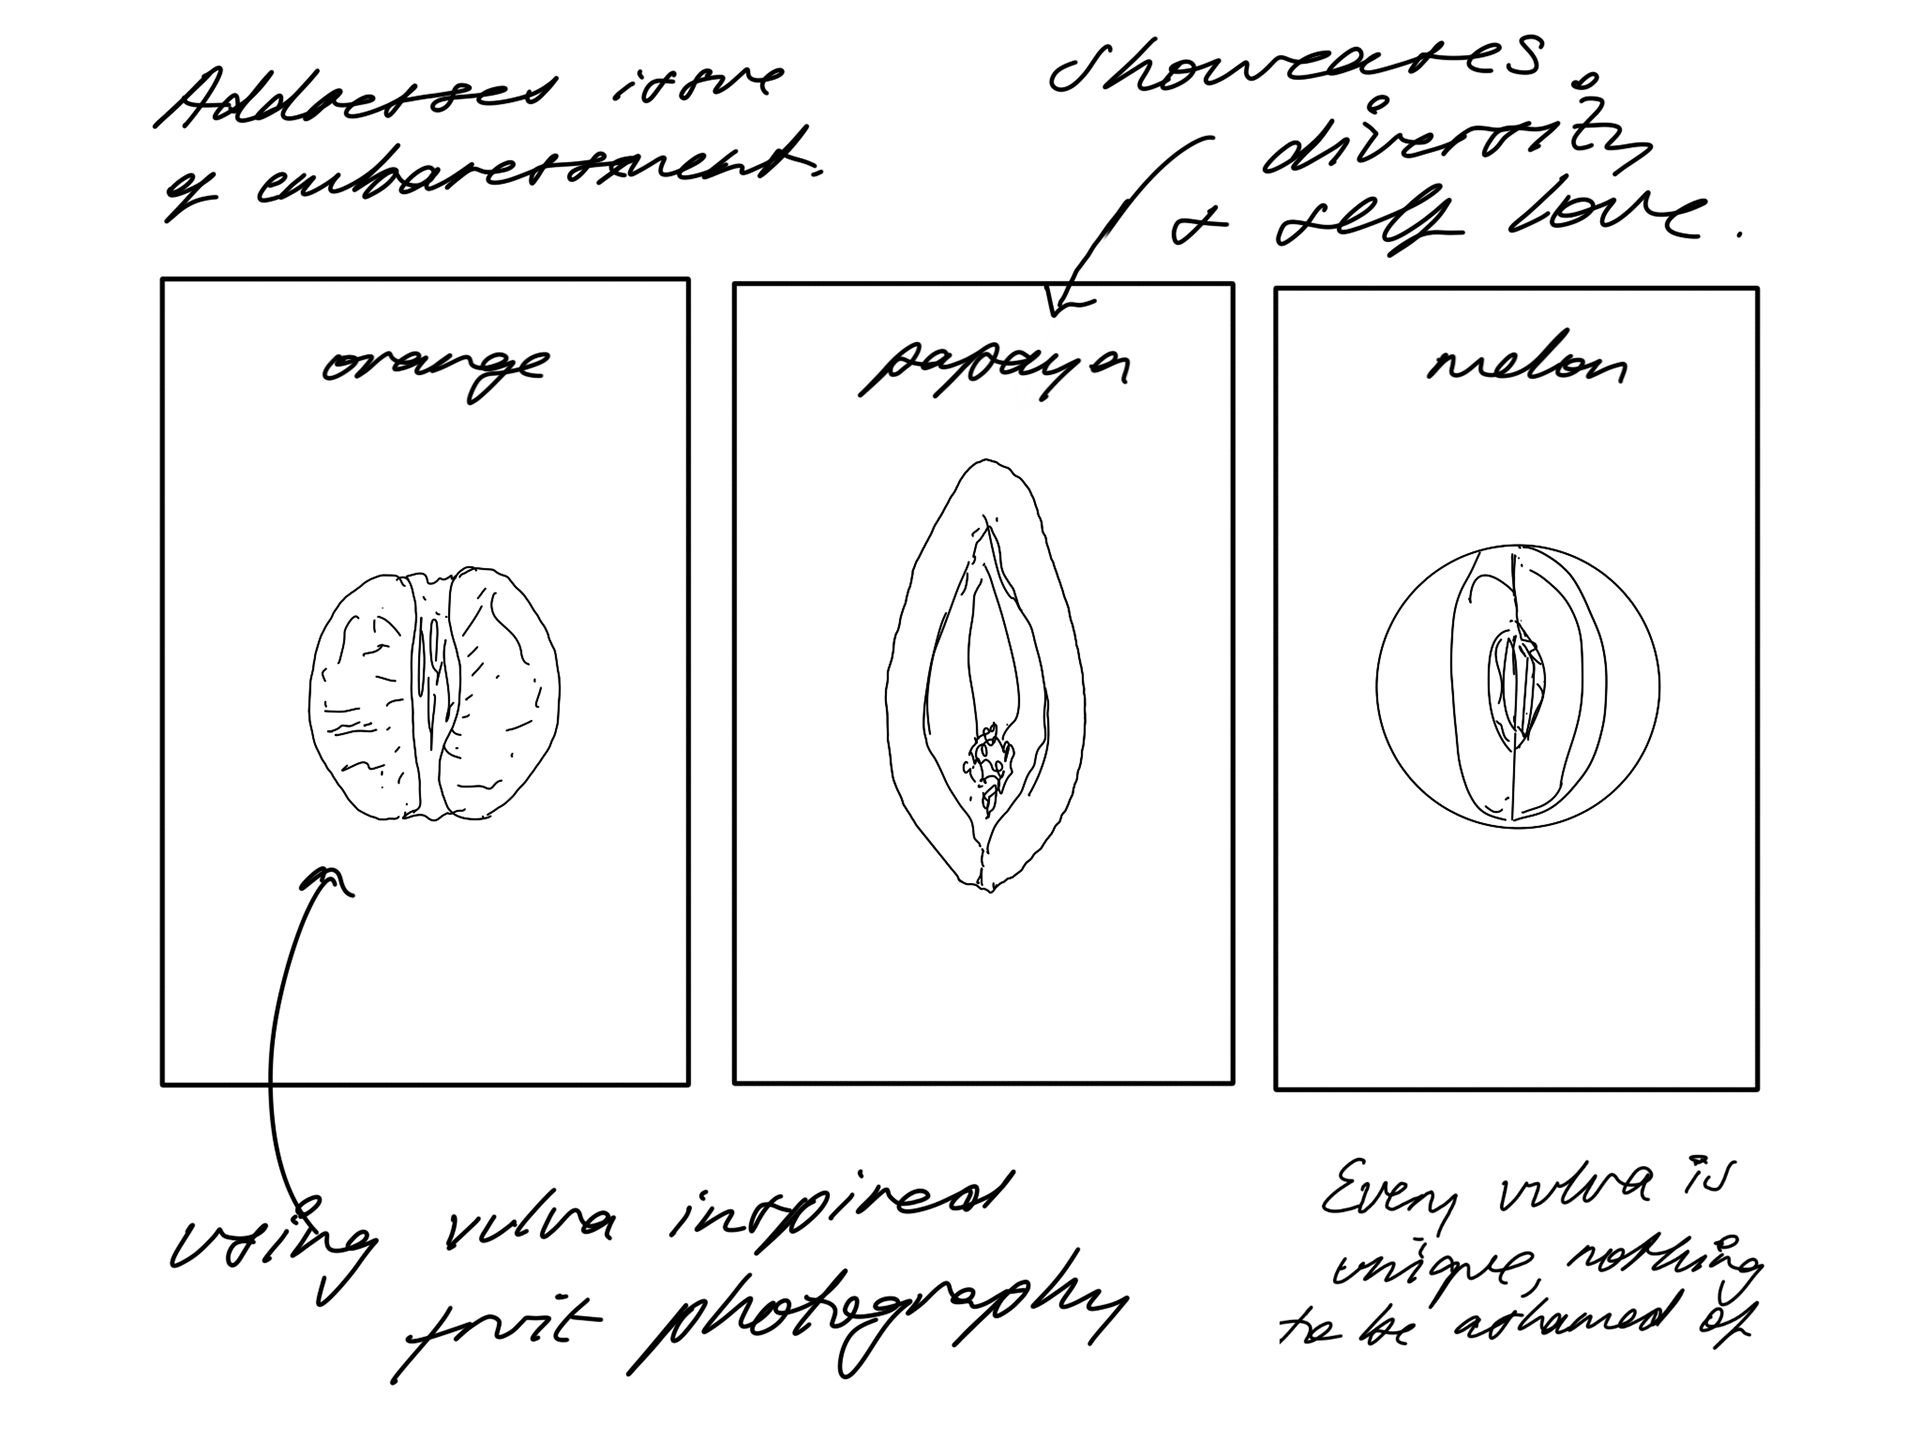 Addresses issue
of embaressment.
Showcases
diversity
& self love.
orange
papaya
melon
using vulva inspired
fruit photography
Every vulva is
unique, nothing
to be ashamed of